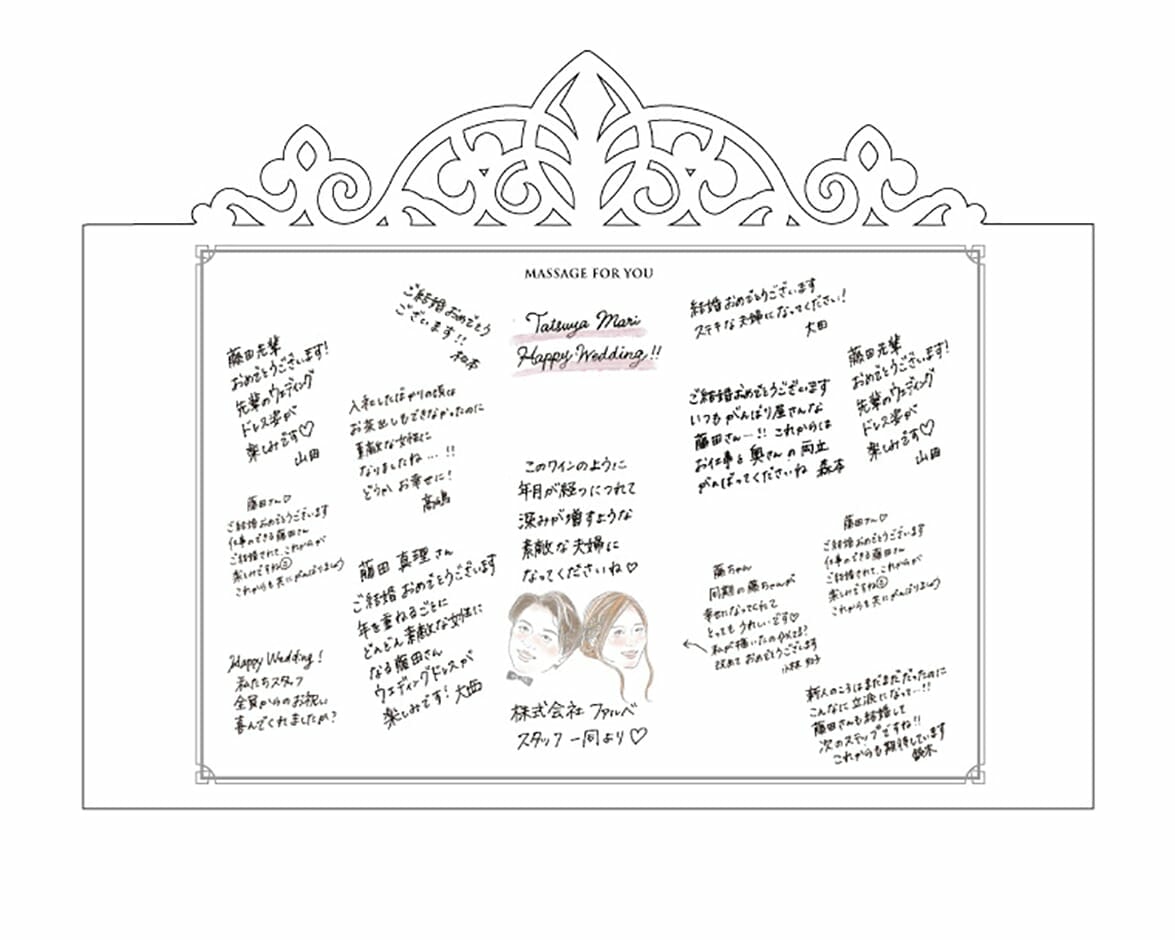 MASSAGE FOR YOU
Tatsuya Mari
Happy Wedding!!
ご結婚おめでとう
ございます!!
松本
結婚おめでとうございます
ステキな夫婦になってください!
大田
藤田先輩
おめでとうございます!
先輩のウェディング
ドレス姿が
楽しみです♡
山田
入社したばかりの頃は
お茶出しもできなかったのに
素敵な女性に
なりましたね…!!
どうか お幸せに!
高嶋
ご結婚おめでとうございます
いつもがんばり屋さんな
藤田さん…!! これからは
お仕事と奥さんの両立
がんばってくださいね 森本
藤田先輩
おめでとうございます!
先輩のウェディング
ドレス姿が
楽しみです♡
山田
藤田さん♡
ご結婚おめでとうございます
仕事のできる藤田さん
ご結婚されて、これからが
楽しみですね
これからも共にがんばりましょう
このワインのように
年月が経つにつれて
深みが増すような
素敵な夫婦に
なってくださいね♡
藤田さん♡
ご結婚おめでとうございます
仕事のできる藤田さん
ご結婚されて、これからが
楽しみですね
これからも共にがんばりましょう
藤田 真理さん
ご結婚おめでとうございます
年を重ねるごとに
どんどん素敵な女性に
なる藤田さん
ウェディングドレスが
楽しみです! 大西
藤ちゃん
同期の藤ちゃんが
幸せになってくれて
とってもうれしいです♡
← 私が描いたの似てる?
改めておめでとうございます
小林
Happy Wedding!
私たちスタッフ
全員からのお祝い
喜んでくれましたか?
株式会社 ファルベ
スタッフ一同より♡
新人のころはまだまだだったのに
こんなに立派になって…!!
藤田さんも結婚して
次のステップですね!!
これからも期待しています
鈴木